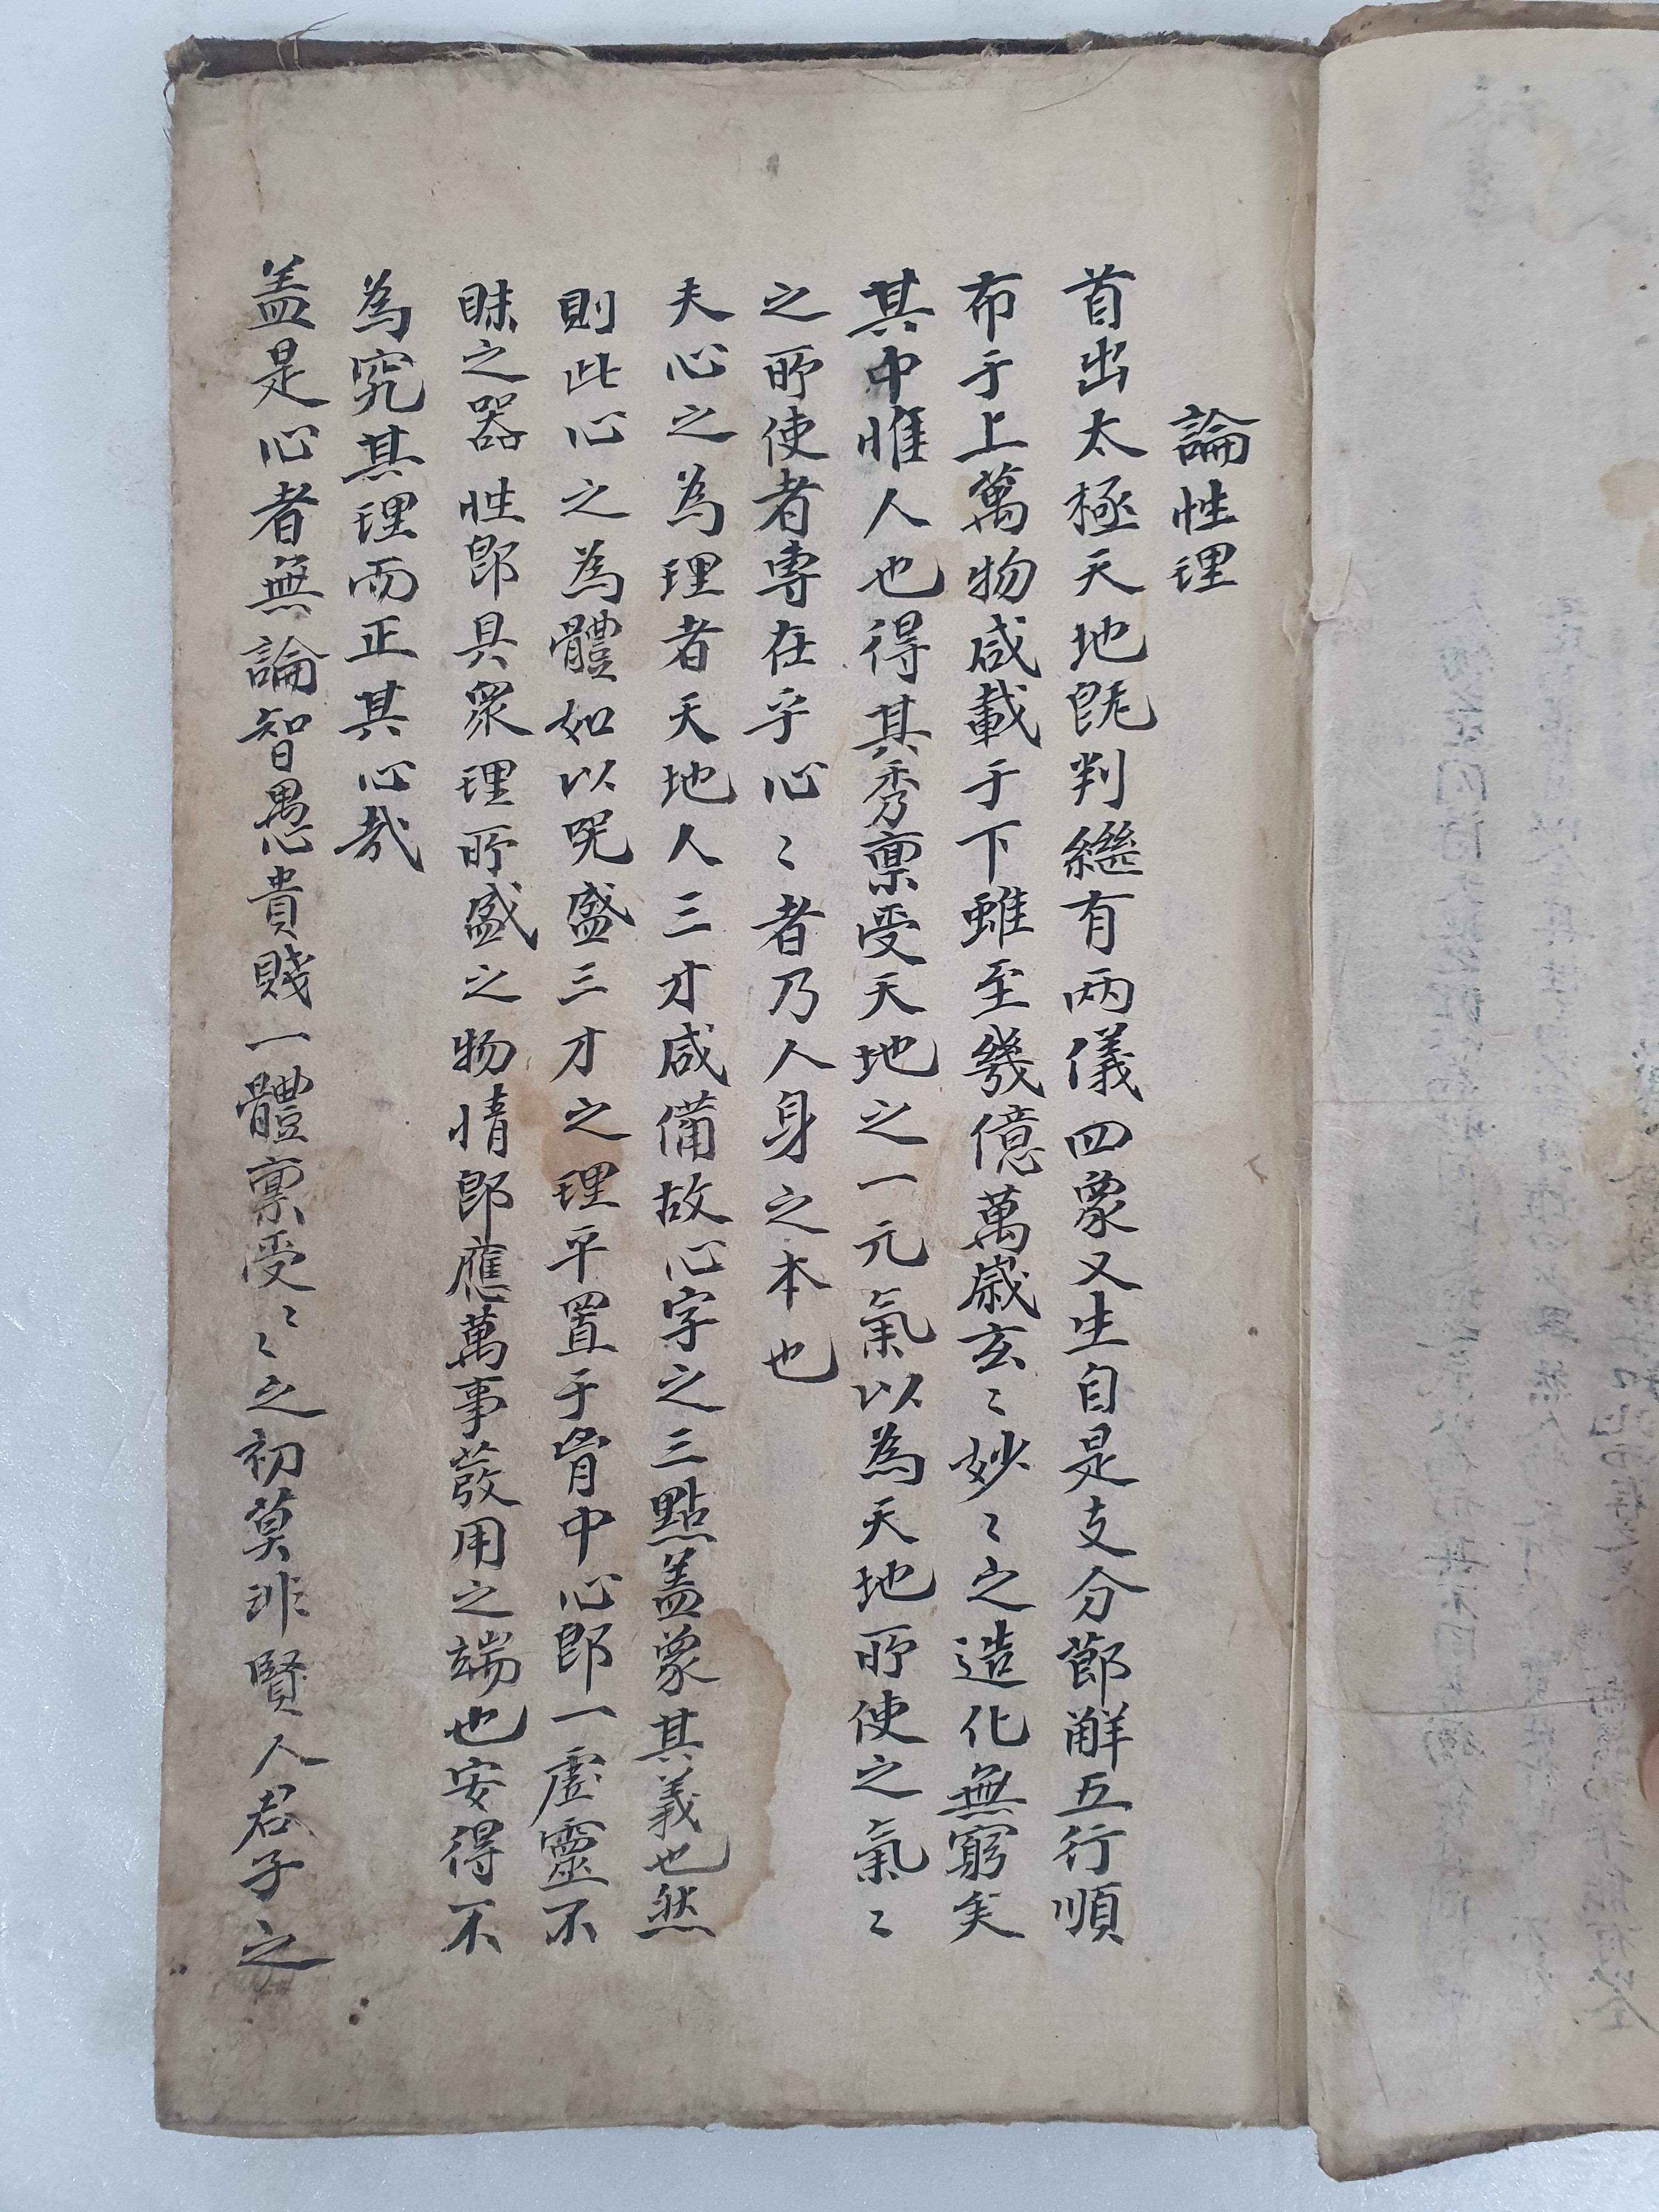 論性理
首出太極天地旣判繼有兩儀四象又生自是支分節解五行順
布于上萬物咸載于下雖至幾億萬歲玄〻妙〻之造化無窮矣
其中惟人也得其秀稟受天地之一元氣以為天地所使之氣〻
之所使者專在乎心〻者乃人身之本也
夫心之為理者天地人三才咸備故心字之三點盖象其義也然
則此心之為體如以咒盛三才之理平置于胷中心卽一虛靈不
昧之器性卽具衆理所盛之物情卽應萬事發用之端也安得不
為究其理而正其心哉
盖是心者無論智愚貴賤一體稟受〻〻之初莫非賢人君子之